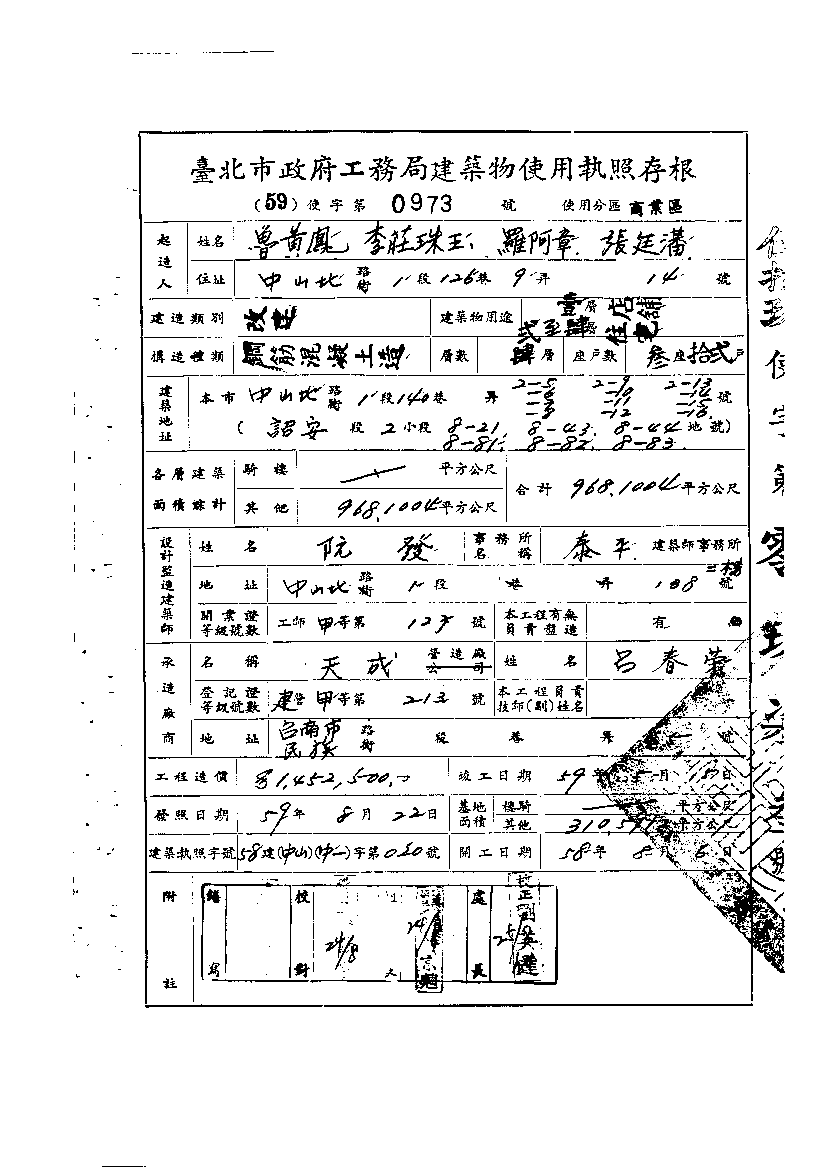 臺北市政府工務局建築物使用執照存根
(59)使字第 0973 號 使用分區 商業區
起造人 姓名 魯黃鳳 李莊珠玉 羅阿章 張廷潘
住址 中山北路街 1段126巷 9弄 14號
建造類別 改建 建築物用途 壹層店舖 貳至肆層住宅
構造種類 鋼筋混凝土造 層數 肆層 座戶數 叁座拾弍戶
建築地址 本市中山北路街 1段140巷 弄 2-5 2-9 2-13 號
-6 -10 -14
-7 -11 -15
-8 -12 -16
( 詔安 段 2小段 8-21, 8-43, 8-44 地號)
8-81, 8-82, 8-83
各層建築面積總計 騎樓 平方公尺
其他 968.1004平方公尺 合計 968.1004平方公尺
設計監造建築師 姓名 阮發 事務所名稱 泰平 建築師事務所
地址 中山北路街 1段 巷 弄 108號 三樓
開業證等級號數 工師甲等第 123 號 本工程有無負責監造 有
承造廠商 名稱 天成 營造廠公司 姓名 呂春榮
登記證等級號數 建營甲等第 213 號 本工程負責技師(副)姓名
地址 台南市民族路街 段 巷 弄 號
工程造價 1,452,500.0 竣工日期 59年 5月 日
發照日期 59年 8月 22日 基地面積 樓騎 平方公尺
其他 平方公尺
建築執照字號 58建(中山)(中一)字第020號 開工日期 58年 8月 6日
附註 繕寫 校對 24/8 處長